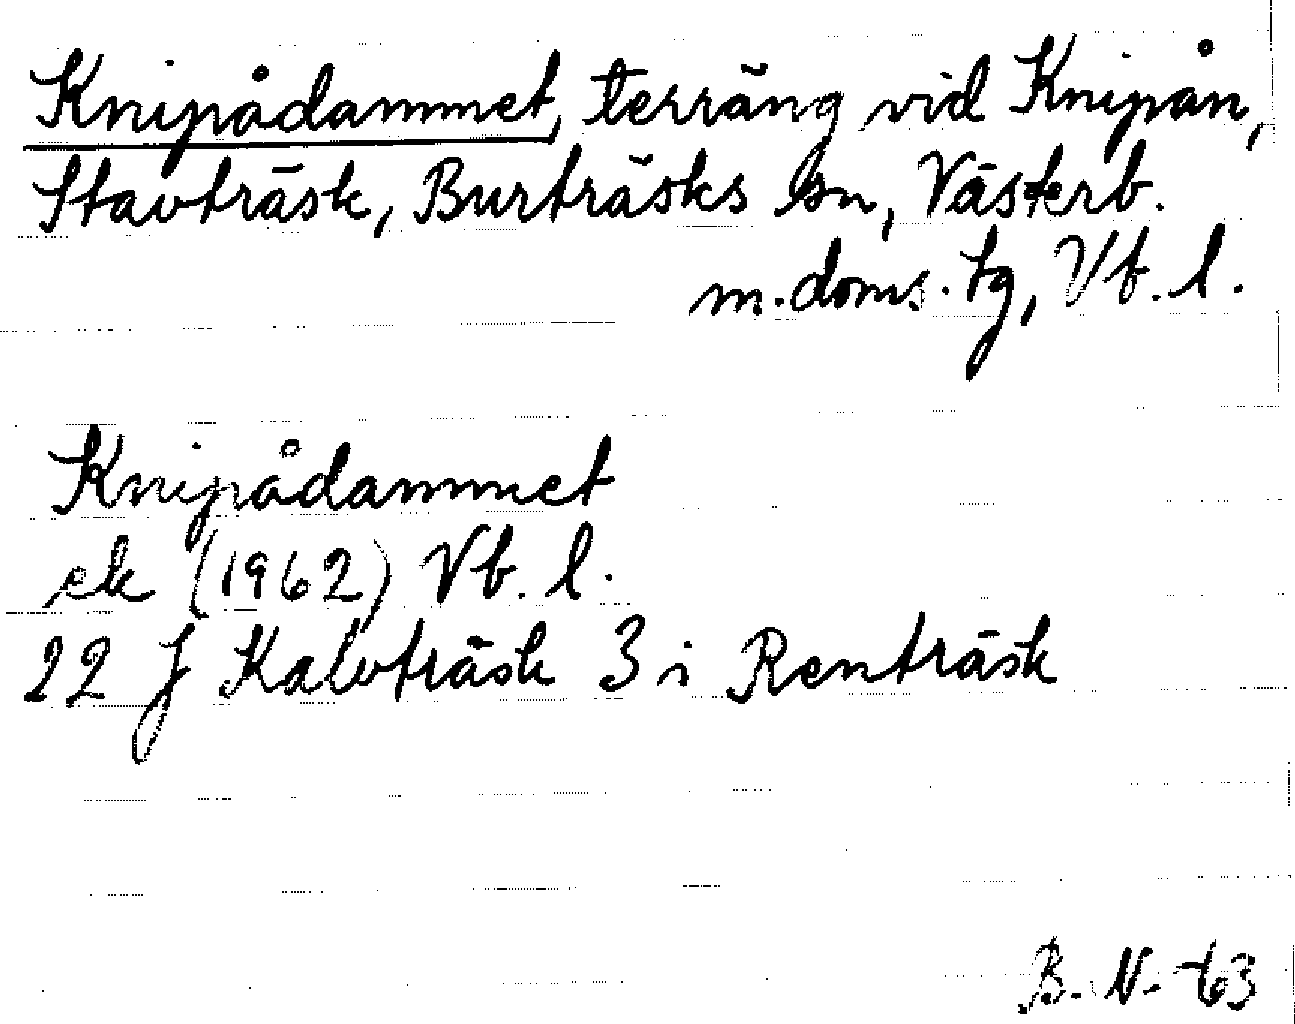 Knipådammet, terräng vid Knipån,
Stavträsk, Burträsks sn, Västerb.
m. doms. tg, Vb. l.
Knipådammet
ek (1962) Vb. l.
22 J Kalvträsk 3 i Renträsk
B. N. 63